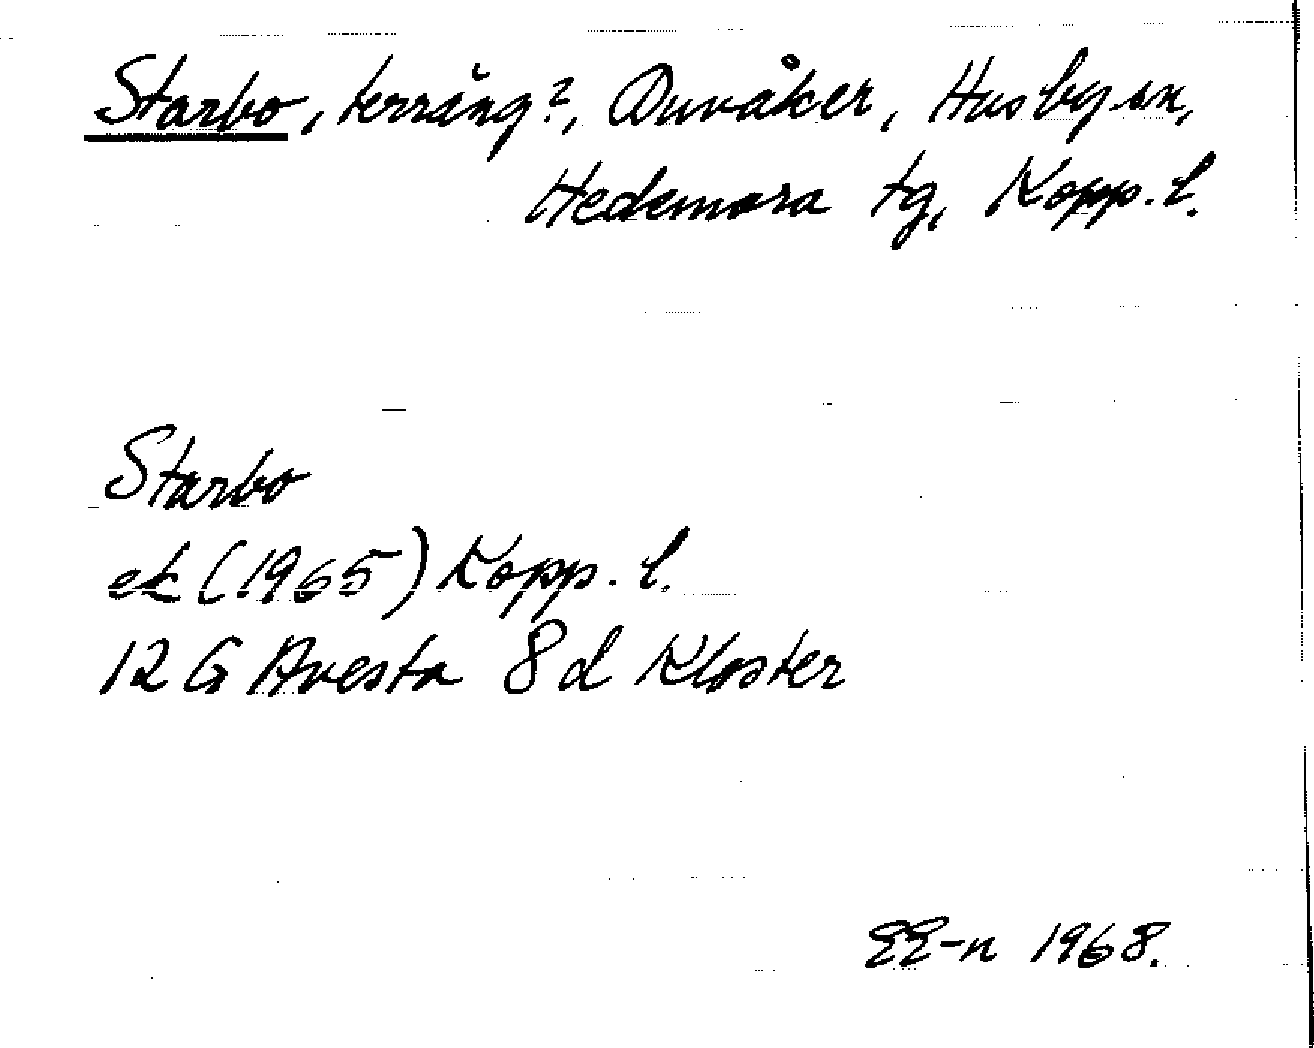 Starbo, terräng?, Duvåker, Husby sn,
Hedemora tg, Kopp. l.
Starbo
ek (1965) Kopp. l.
12 G Avesta 8d Kloster
EE-n 1968.